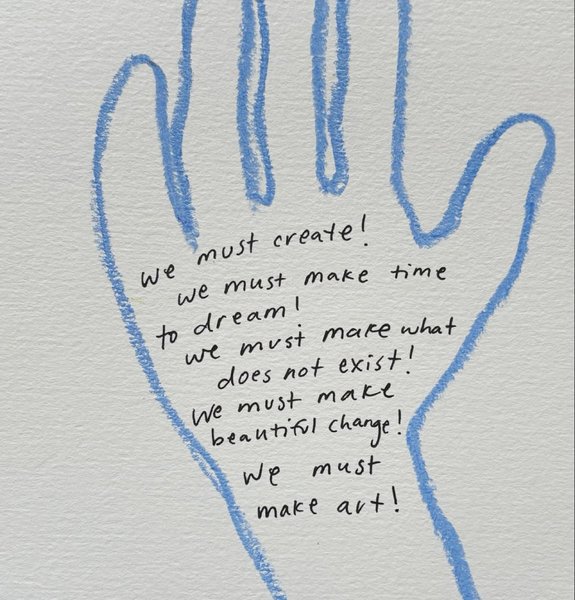 we must create!
we must make time
to dream!
we must make what
does not exist!
we must make
beautiful change!
we must
make art!